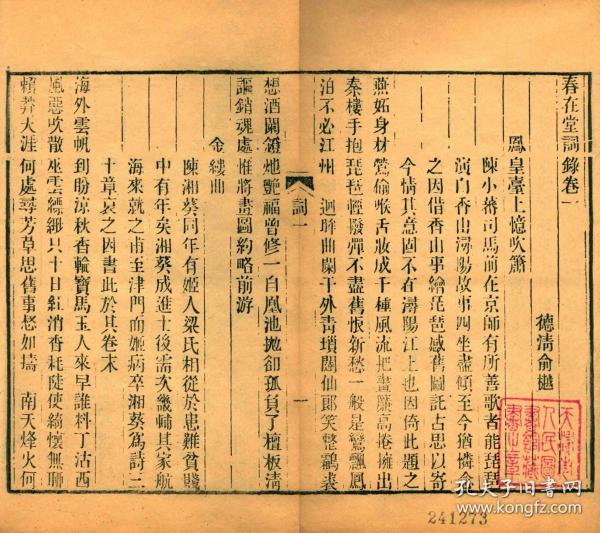 春在堂詞錄卷一
德淸俞樾
鳳皇臺上憶吹簫
陳小蕃司馬前在京師有所善歌者能琵琶
演白香山潯陽故事四坐盡傾至今猶憐念
之因借香山事繪琵琶感舊圖託占思以寄
今情其意固不在潯陽江上也因倚此題之
燕妬身材鶯偷喉舌妝成千種風流把畫簾高捲擁出
秦樓手抱琵琶輕撥彈不盡舊恨新愁一般是鸞飄鳳
泊不必江州　迴眸曲闌干外靑瑣闥仙郎笑整鸘裘
想酒闌鐙灺艷福曾修一自鳳池拋卻孤負了檀板淸
謳銷魂處惟將畫圖約略前游
金縷曲
陳湘葵同年有姬人梁氏相從於患難貧賤
中有年矣湘葵成進士後需次畿輔其家航
海來就之甫至津門而姬病卒湘葵爲詩三
十章哀之因書此於其卷末
海外雲帆到盼涼秋香輪寶馬玉人來早誰料丁沽西
風惡吹散巫雲縹緲只十日紅消香耗陡使綺懷無聊
賴莽天涯何處尋芳草思舊事惄如擣　南天烽火何
詞一
一
241273
孔夫子旧书网